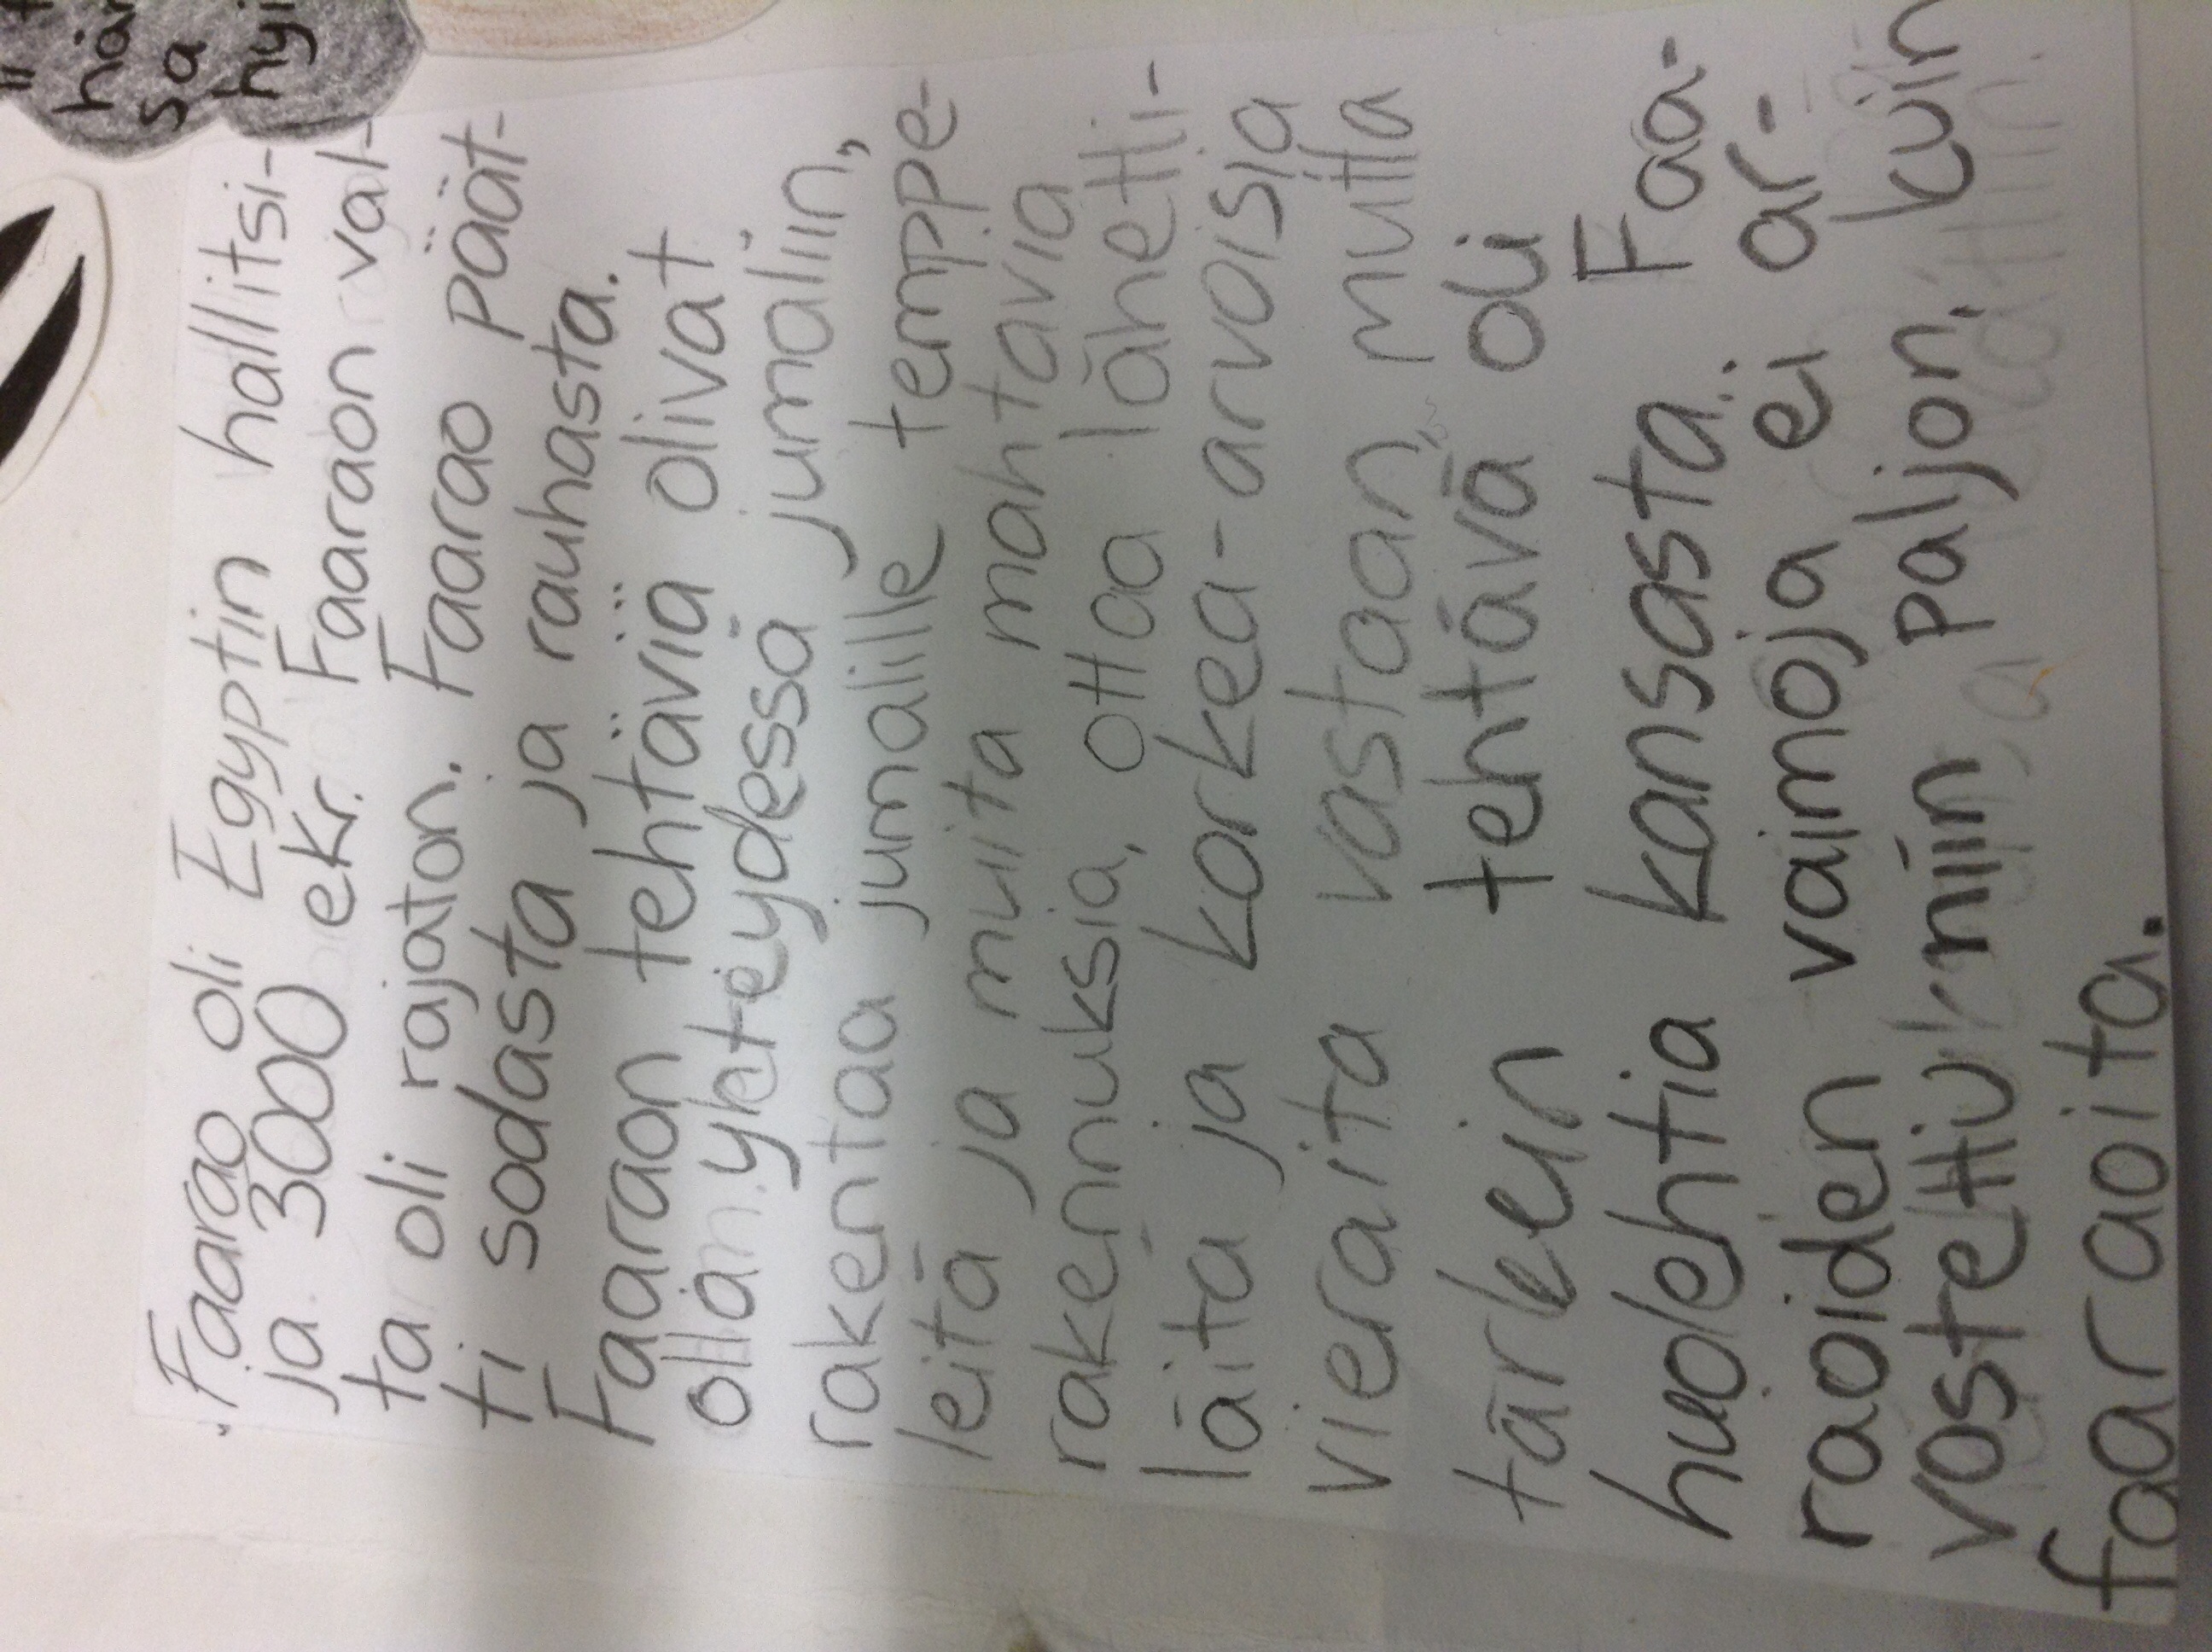 Faarao oli Egyptin hallitsi-
ja 3000 ekr. Faaraon val-
ta oli rajaton. Faarao päät-
ti sodasta ja rauhasta.
Faaraon tehtäviä olivat
olla yhteydessä jumaliin,
rakentaa jumalille temppe-
leitä ja muita mahtavia
rakennuksia, ottaa lähetti-
läitä ja korkea-arvoisia
vieraita vastaan, mutta
tärkein tehtävä oli
huolehtia kansasta. Faa-
raoiden vaimoja ei ar-
vostettu niin paljon, kuin
faaraoita.
hän
sa
hyi